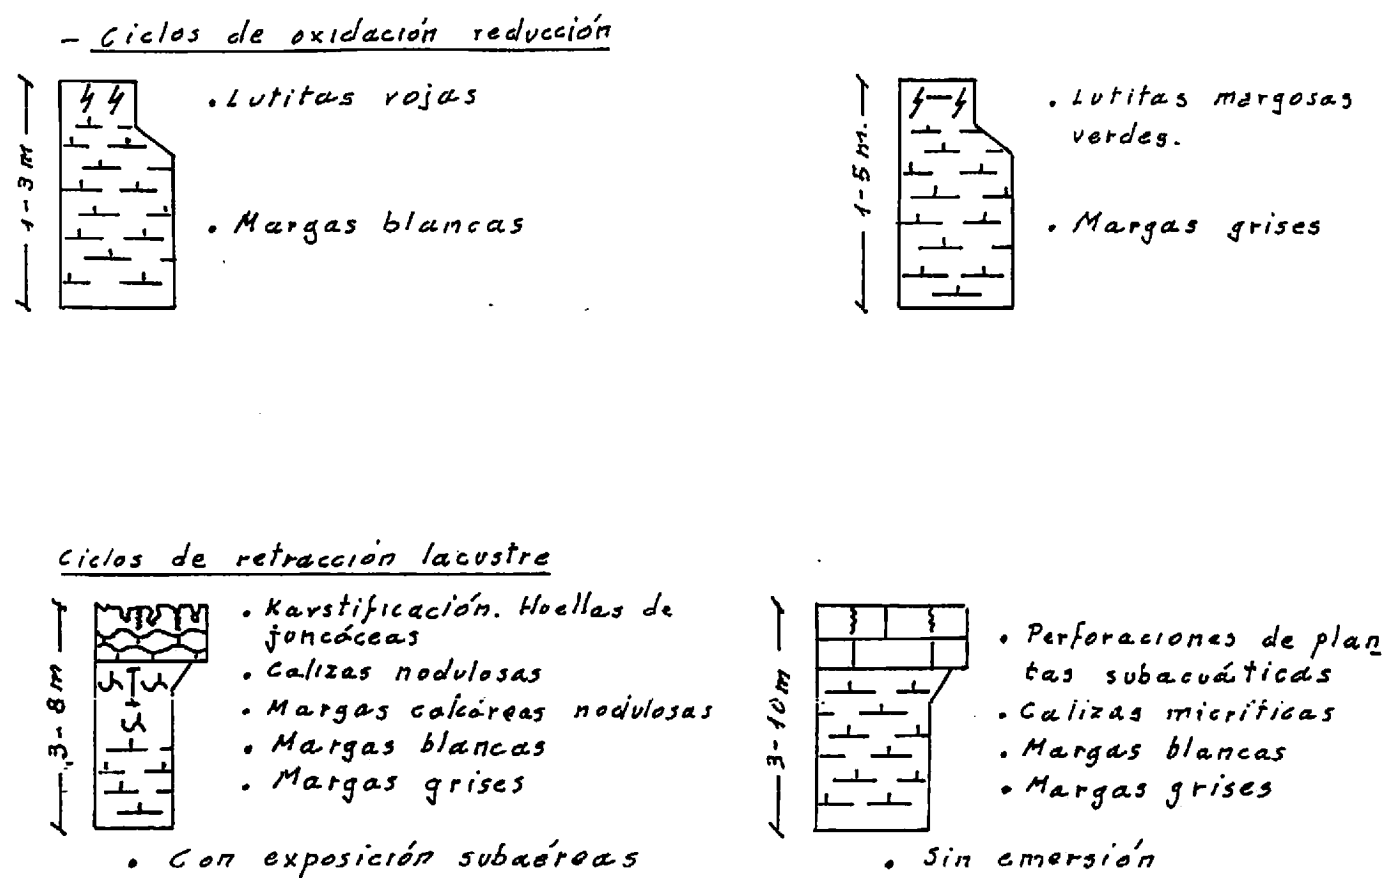 – Ciclos de oxidación reducción
1-3 m
• Lutitas rojas
• Margas blancas
1-5 m.
• Lutitas margosas
verdes.
• Margas grises
Ciclos de retracción lacustre
3-8 m
• Karstificación. Huellas de
juncóceas
• Calizas nodulosas
• Margas calcáreas nodulosas
• Margas blancas
• Margas grises
• Con exposición subaéreas
3-10 m
• Perforaciones de plan
tas subacuáticas
• Calizas micríticas
• Margas blancas
• Margas grises
• Sin emersión